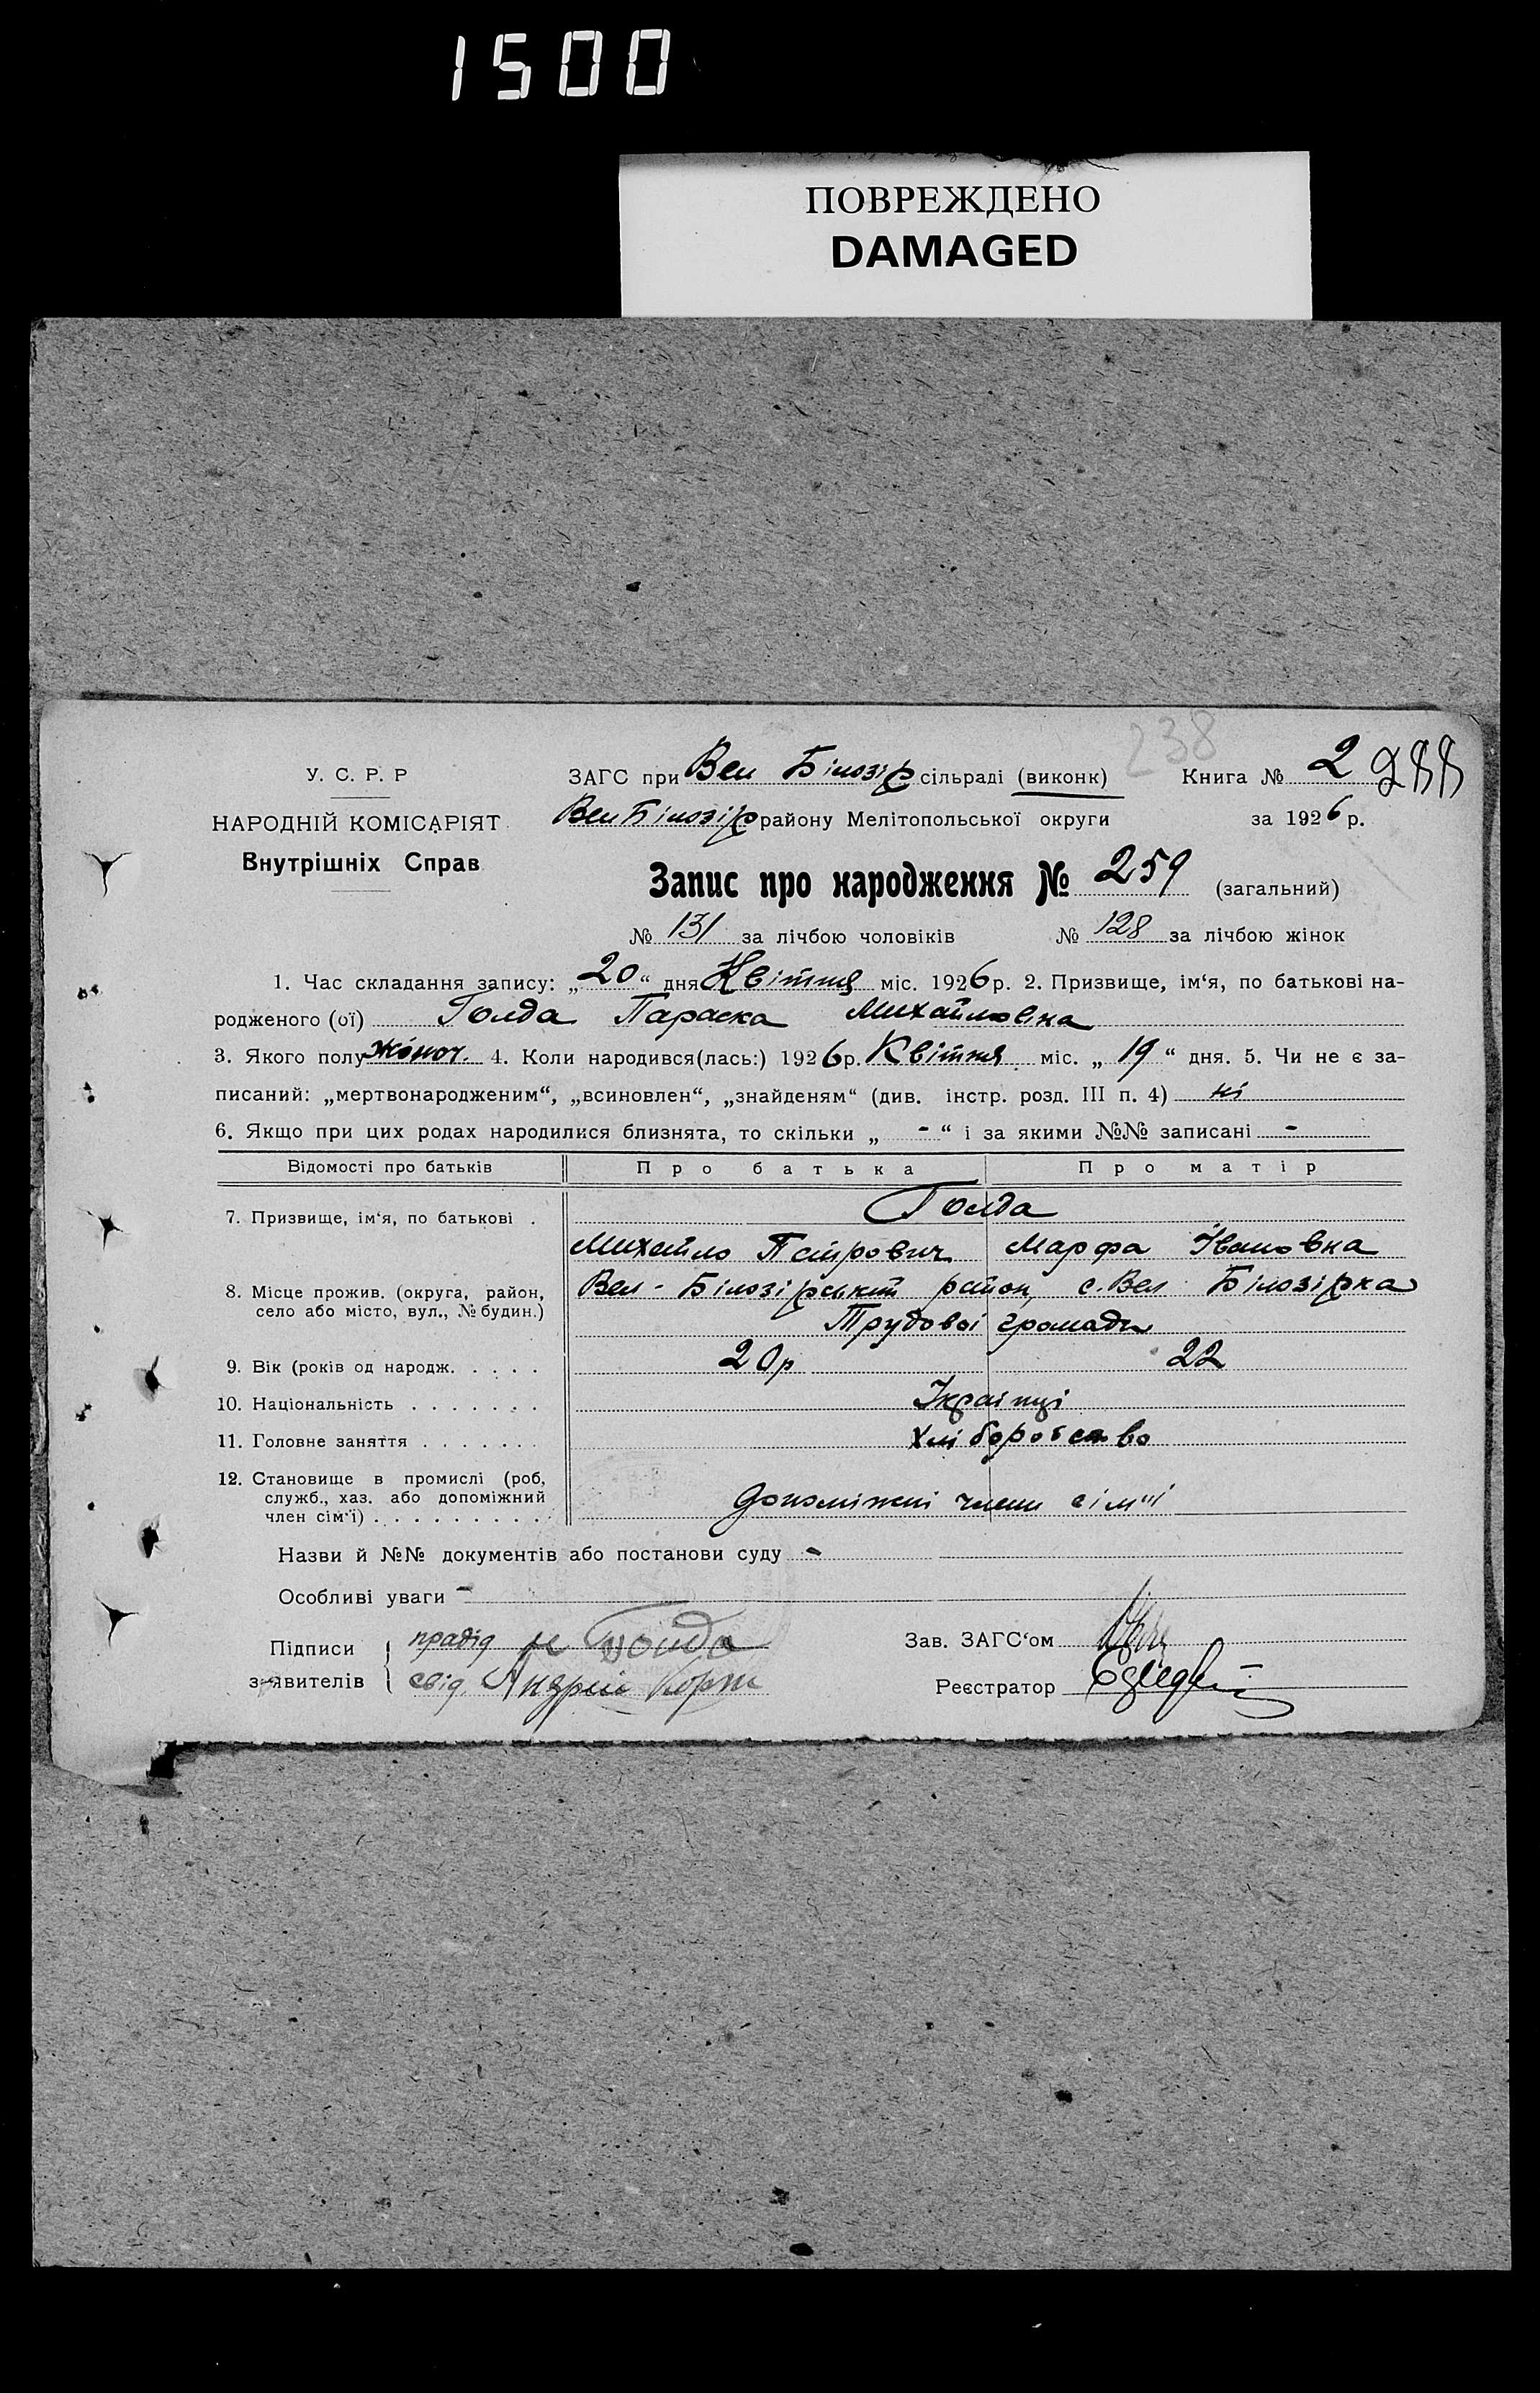 1500
ПОВРЕЖДЕНО
DAMAGED
238
У. С. Р. Р
НАРОДНІЙ КОМІСАРІЯТ
Внутрішніх Справ
ЗАГС при Вел Білозір сільраді (виконк) Книга № 2 288
Вел Білозір району Мелітопольської округи за 1926 р.
Запис про народження № 259 (загальний)
№ 131 за лічбою чоловіків № 128 за лічбою жінок
1. Час складання запису: „20“ дня Квітня міс. 1926 р. 2. Призвище, ім‘я, по батькові на-
родженого (ої) Голда Параска Михайловна
3. Якого полу жіноч. 4. Коли народився(лась:) 1926 р. Квітня міс. „19“ дня. 5. Чи не є за-
писаний: „мертвонародженим“, „всиновлен“, „знайденям“ (див. інстр. розд. III п. 4) ні
6. Якщо при цих родах народилися близнята, то скільки „ - “ і за якими №№ записані -
Відомості про батьків Про батька Про матір
Голда
7. Призвище, ім‘я, по батькові .
Михайло Петрович Марфа Івановна
8. Місце прожив. (округа, район, Вел-Білозірський район, с. Вел Білозірка
село або місто, вул., № будин.) Трудової громади
9. Вік (років од народж. . . . . 20р 22
10. Національність . . . . . . . Українці
11. Головне заняття . . . . . . . Хліборобство
12. Становище в промислі (роб,
служб., хаз. або допоміжний допоміжні члени сім'ї
член сім‘ї) . . . . . . . . . .
Назви й №№ документів або постанови суду -
Особливі уваги -
Підписи прадід Голда Зав. ЗАГС‘ом
з-явителів свід. Андрій Корж Реєстратор